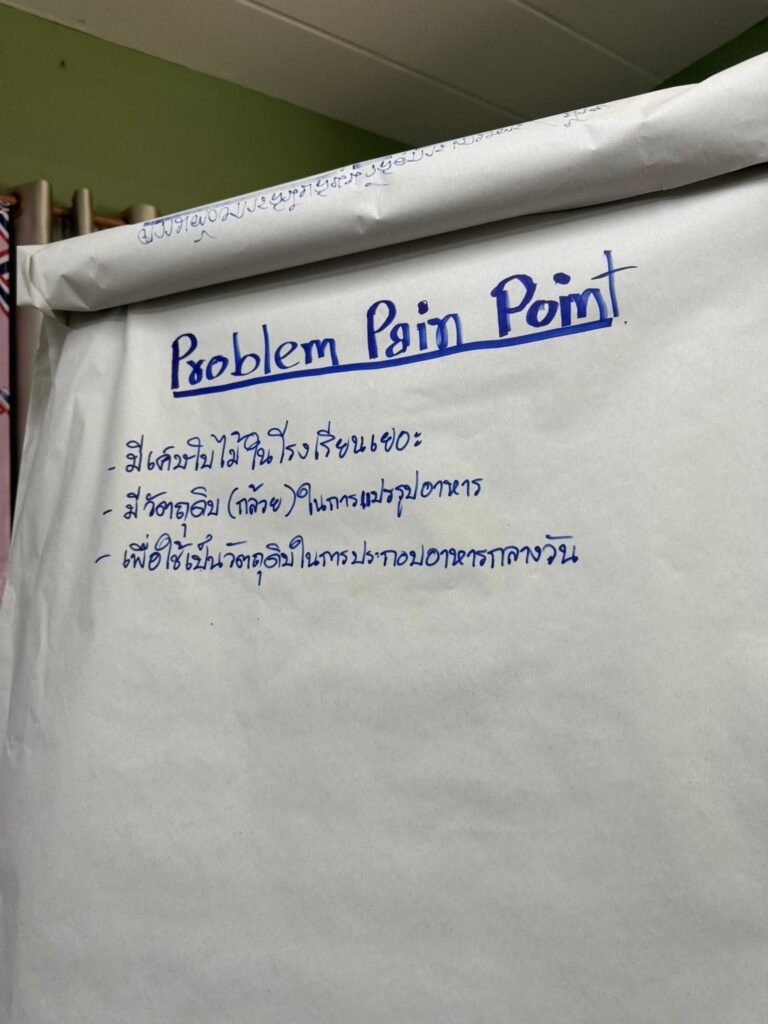 Problem Pain Point
- มีเศษใบไม้ในโรงเรียนเยอะ
- มีวัตถุดิบ (กล้วย) ในการแปรรูปอาหาร
- เพื่อใช้เป็นวัตถุดิบในการประกอบอาหารกลางวัน